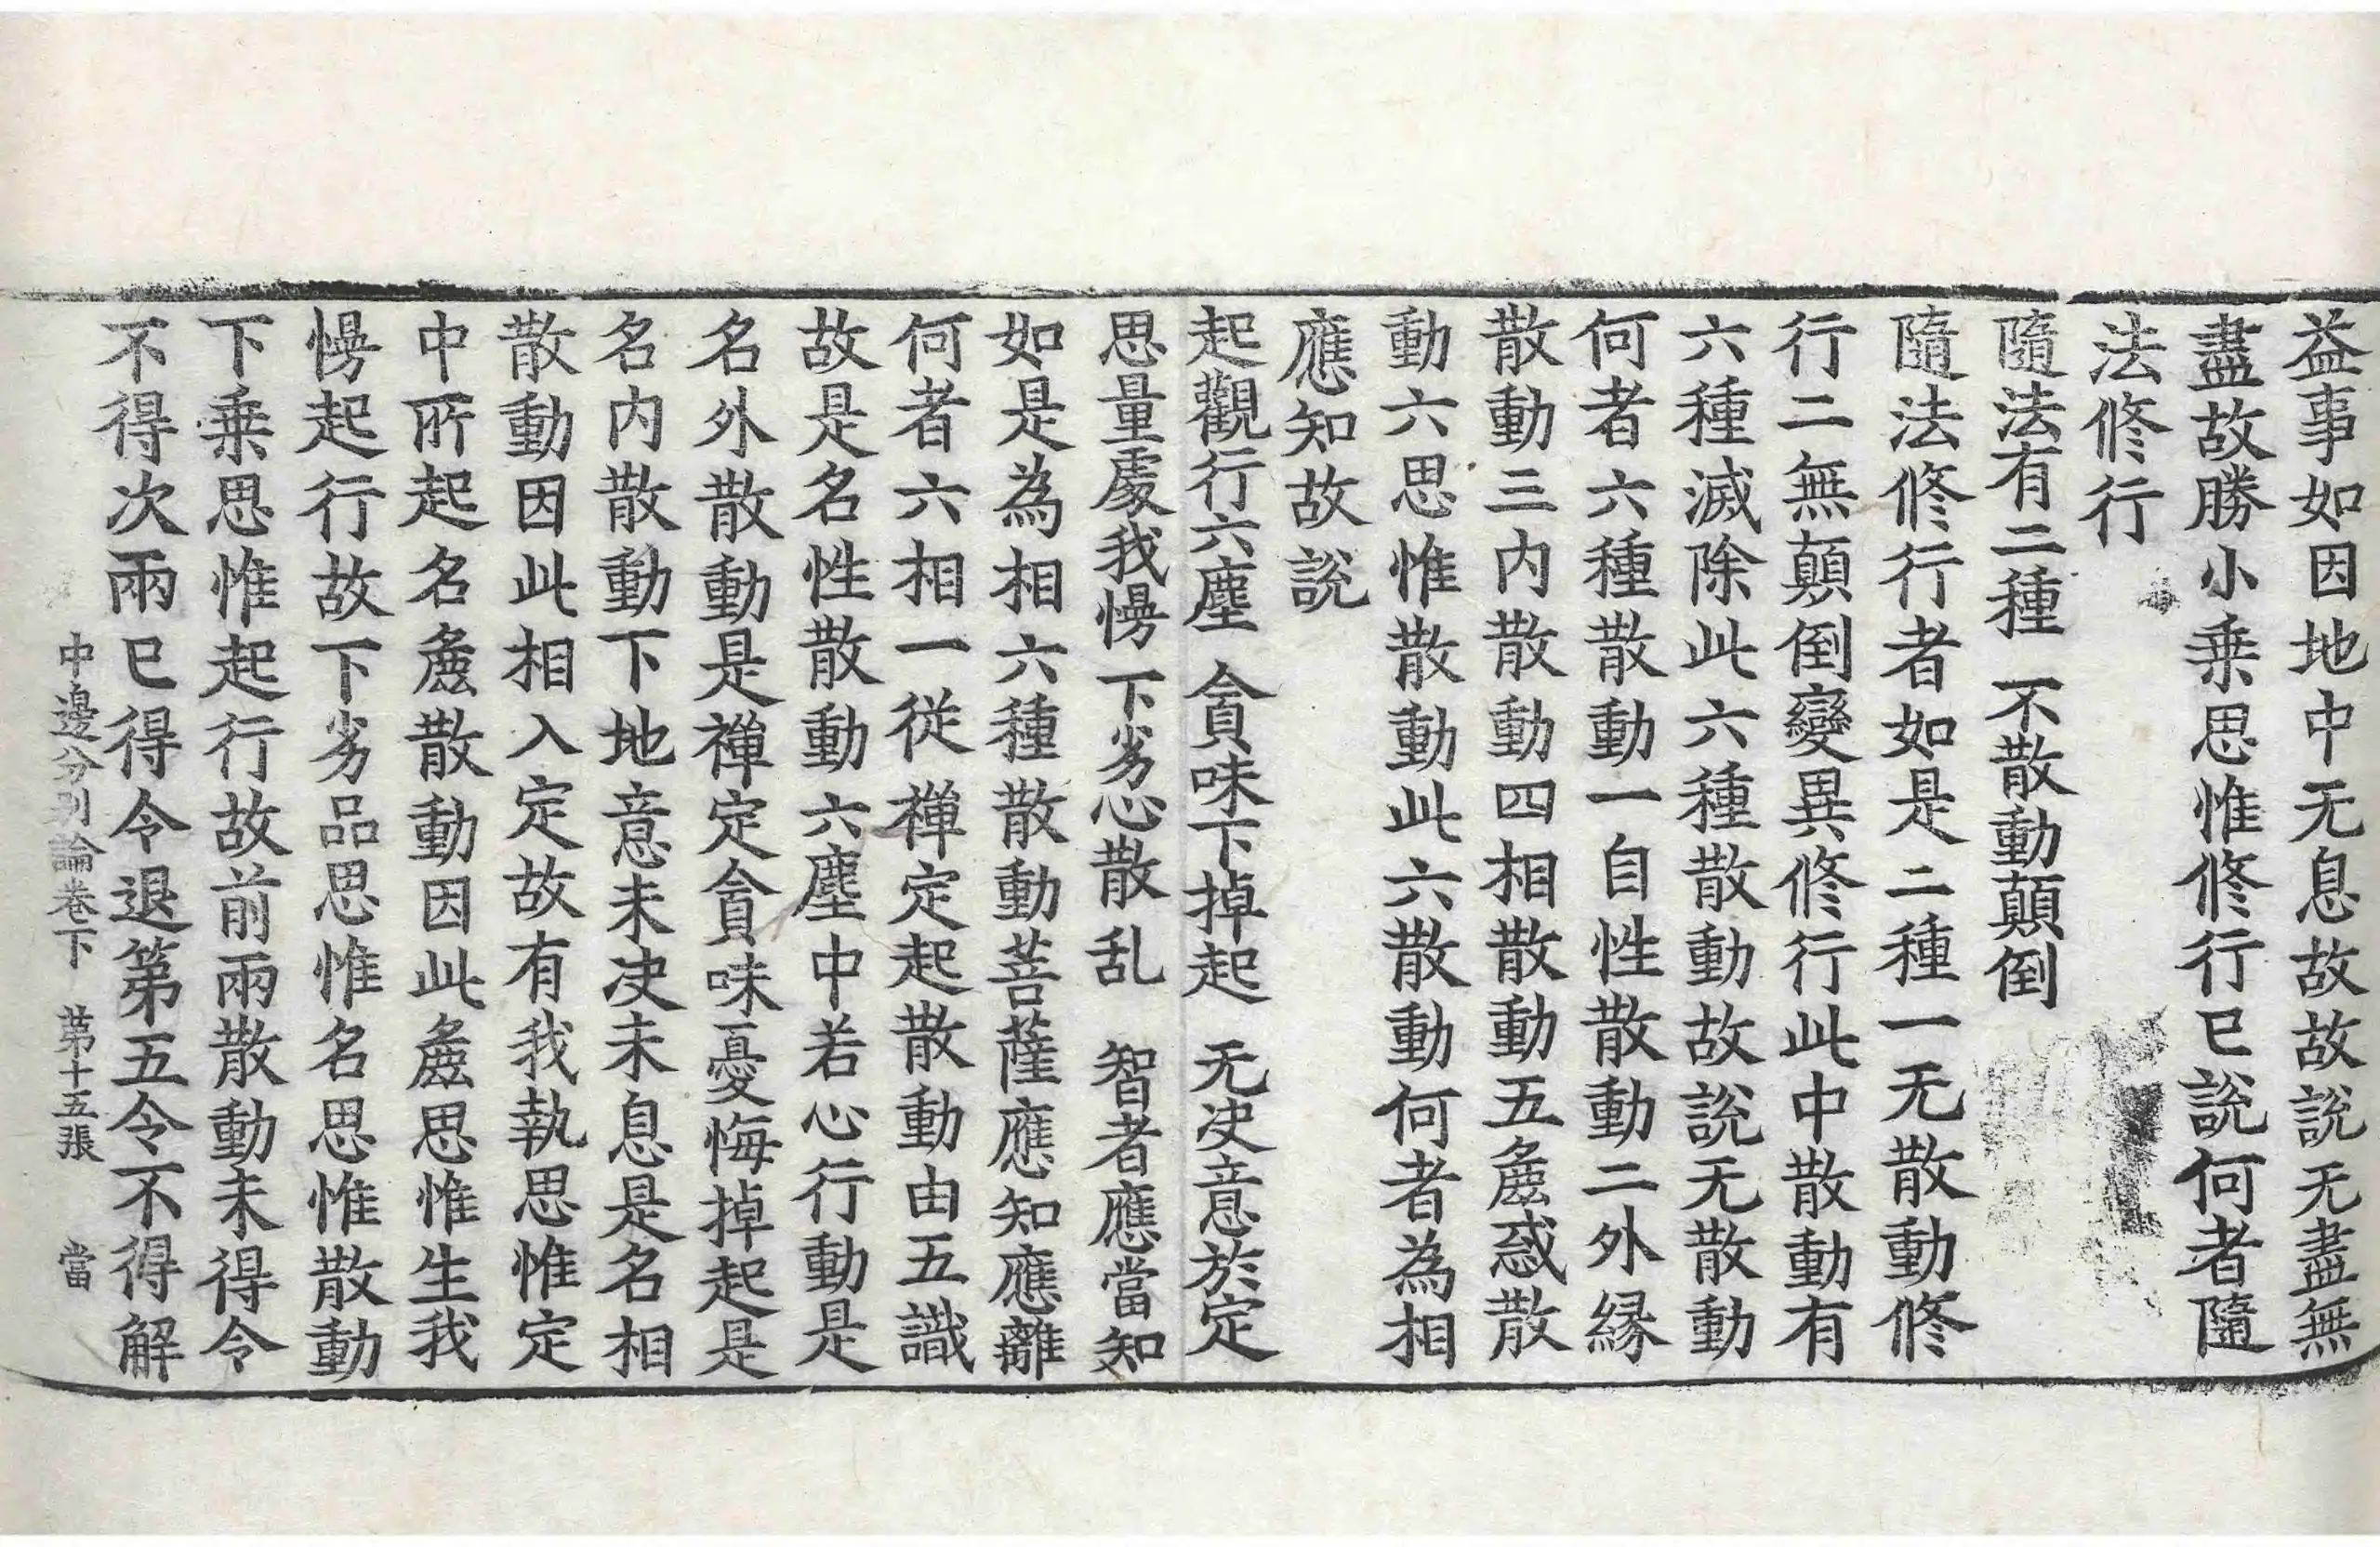 益事如因地中无息故故說无盡無
盡故勝小乗思惟修行已說何者隨
法修行
隨法有二種 不散動顛倒
隨法修行者如是二種一无散動修
行二無顛倒變異修行此中散動有
六種滅除此六種散動故說无散動
何者六種散動一自性散動二外縁
散動三内散動四相散動五麁惑散
動六思惟散動此六散動何者為相
應知故說
起觀行六塵 貪味下掉起 无决意於定
思量處我慢 下劣心散乱 智者應當知
如是為相六種散動菩薩應知應離
何者六相一從禪定起散動由五識
故是名性散動六塵中若心行動是
名外散動是禪定貪味憂悔掉起是
名内散動下地意未决未息是名相
散動因此相入定故有我執思惟定
中所起名麁散動因此麁思惟生我
慢起行故下劣品思惟名思惟散動
下乗思惟起行故前兩散動未得令
不得次兩已得令退第五令不得解
中邊分別論卷下 第十五張 當